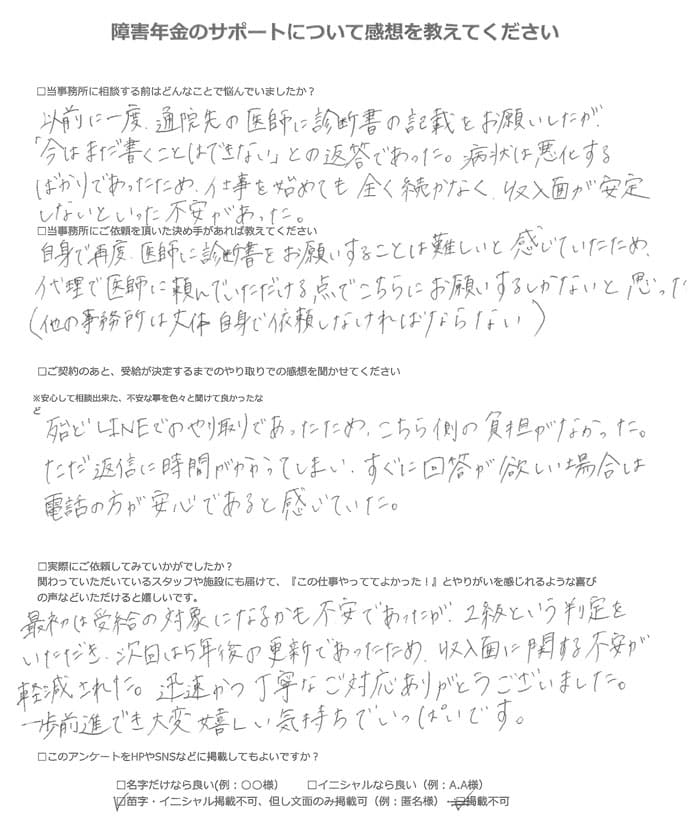 障害年金のサポートについて感想を教えてください
□当事務所に相談する前はどんなことで悩んでいましたか？
以前に一度、通院先の医師に診断書の記載をお願いしたが、
「今はまだ書くことはできない」との返答であった。病状は悪化する
ばかりであったため、仕事を始めても全く続かなく、収入面が安定
しないといった不安があった。
□当事務所にご依頼を頂いた決め手があれば教えてください
自身で再度、医師に診断書をお願いすることは難しいと感じていたため、
代理で医師に頼んでいただける点でこちらにお願いするしかないと思った
(他の事務所は大体自身で依頼しなければならない)
□ご契約のあと、受給が決定するまでのやり取りでの感想を聞かせてください
※安心して相談出来た、不安な事を色々と聞けて良かったな
ど
殆どLINEでのやり取りであったため、こちら側の負担がなかった。
ただ返信に時間がかかってしまい、すぐに回答が欲しい場合は
電話の方が安心であると感じていた。
□実際にご依頼してみていかがでしたか？
関わっていただいているスタッフや施設にも届けて、『この仕事やっててよかった！』とやりがいを感じれるような喜び
の声などいただけると嬉しいです。
最初は受給の対象になるかも不安であったが、2級という判定を
いただき、次回は5年後の更新であったため、収入面に関する不安が
軽減された。迅速かつ丁寧なご対応ありがとうございました。
一歩前進でき大変嬉しい気持ちでいっぱいです。
□このアンケートをHPやSNSなどに掲載してもよいですか？
□名字だけなら良い(例：〇〇様) □イニシャルなら良い（例：A.A様）
□苗字・イニシャル掲載不可、但し文面のみ掲載可（例：匿名様）・□掲載不可